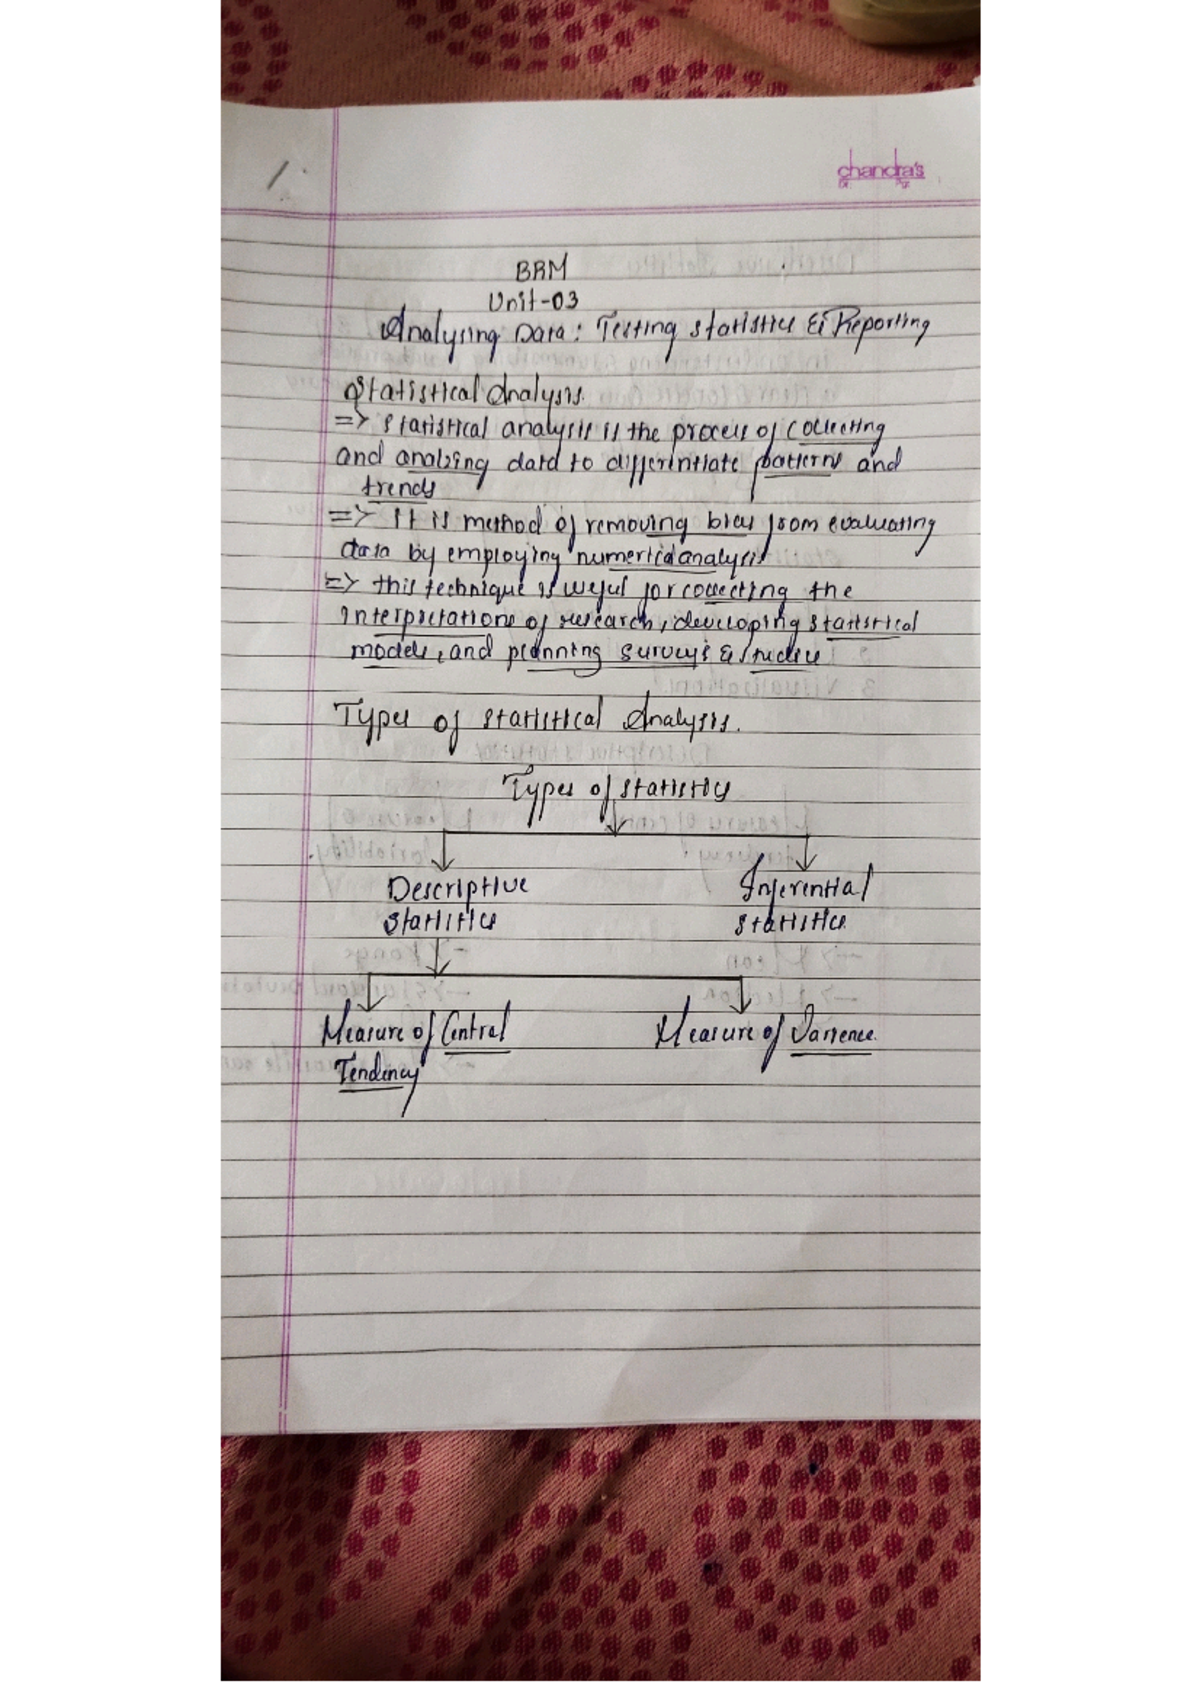 1.
chandra's
BRM
Unit-03
Analysing Data: Testing statistics & Reporting
Statistical Analysis.
=> Statistical analysis is the process of collecting
and analsing data to differintiate patterns and
trends
=> It is method of removing bias from evaluating
data by employing numerical analysis
=> this technique is useful for collecting the
interpretations of research, developing statistical
models, and planning surveys & studies
Types of statistical Analysis.
Types of statistics
Descriptive Inferential
statistics statistics.
Measure of Central Measure of Varience.
Tendency